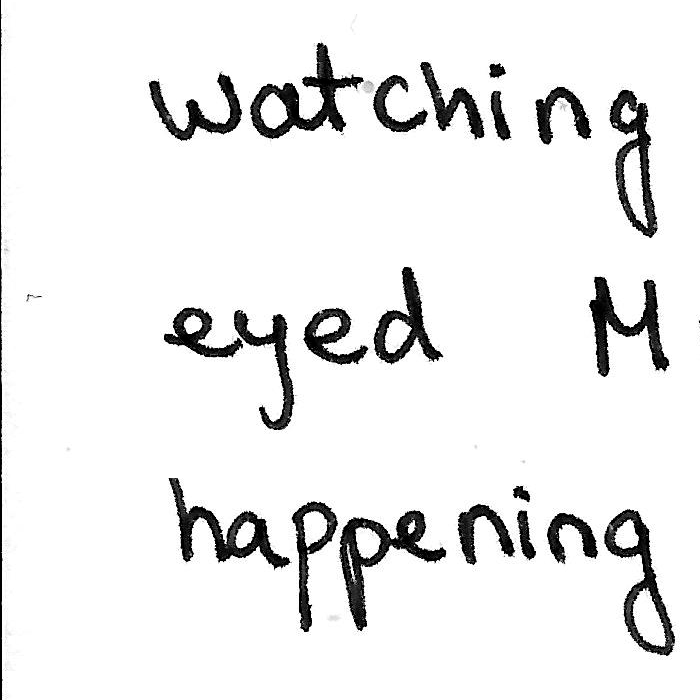 watching
eyed M
happening